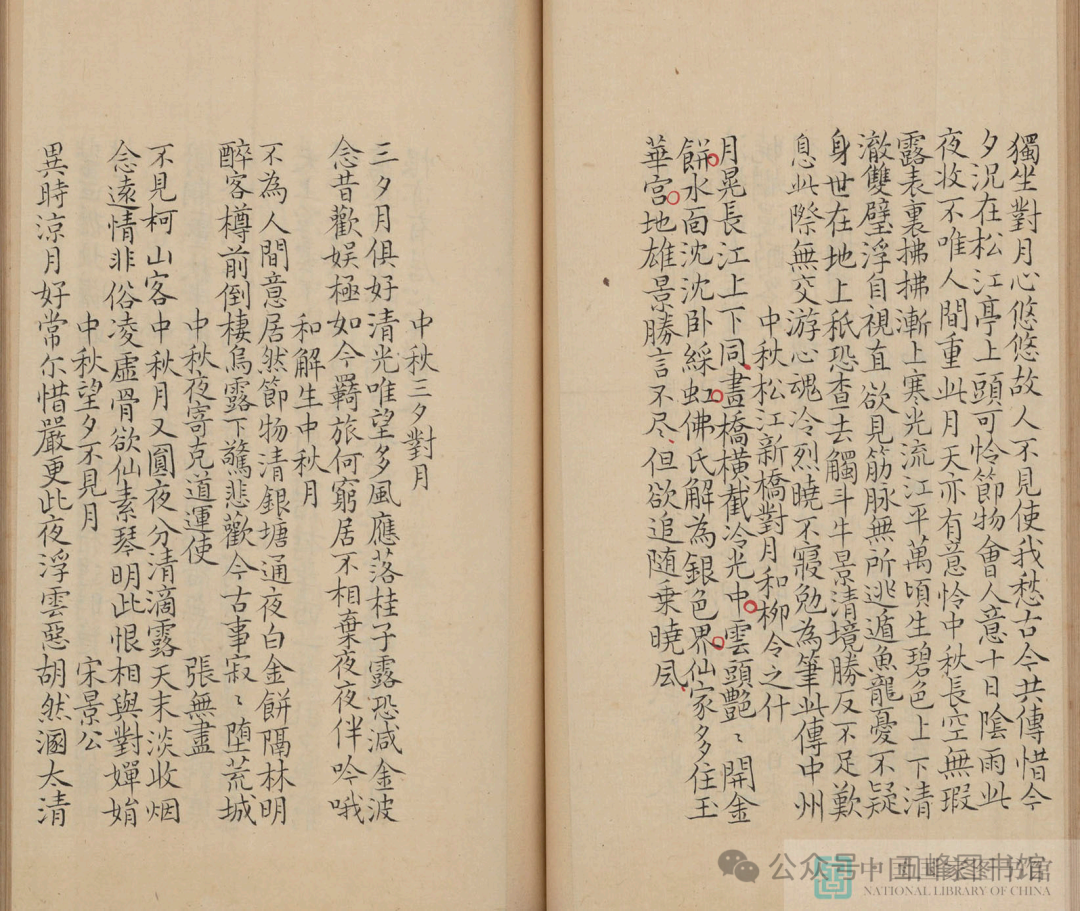 獨坐對月心悠悠故人不見使我愁古今共傳惜今
夕況在松江亭上頭可怜節物會人意十日陰雨此
夜收不唯人間重此月天亦有意怜中秋長空無瑕
露表裏拂拂漸上寒光流江平萬頃生碧色上下清
澈雙璧浮自視直欲見筋脉無所逃遁魚龍憂不疑
身世在地上秖恐查去觸斗牛景清境勝反不足歎
息此際無交游心魂冷烈曉不寢勉為筆此傳中州
中秋松江新橋對月和柳令之什
月晃長江上下同畫橋橫截冷光中雲頭艶〻開金
餅水面沈沈卧綵虹佛氏解為銀色界仙家多住玉
華宮地雄景勝言不尽但欲追随乗曉風
中秋三夕對月
三夕月俱好清光唯望多風應落桂子露恐減金波
念昔歡娛極如今羇旅何窮居不相棄夜夜伴吟哦
和解生中秋月
不為人間意居然節物清銀塘通夜白金餅隔林明
醉客樽前倒棲烏露下驚悲歡今古事寂〻墮荒城
中秋夜寄克道運使 張無盡
不見柯山客中秋月又圓夜分清滴露天末淡收烟
念遠情非俗凌虛骨欲仙素琴明此恨相與對嬋娟
中秋望夕不見月 宋景公
異時涼月好常尓惜嚴更此夜浮雲惡胡然溷太清
公众号·五峰图书馆
中国国家图书馆
NATIONAL LIBRARY OF CHINA